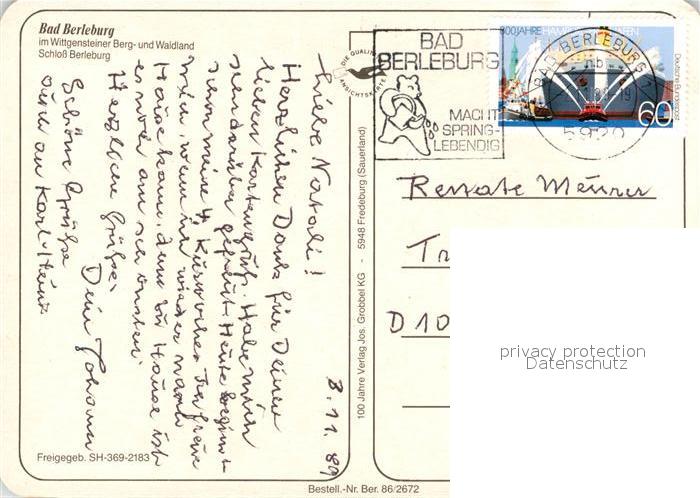 Bad Berleburg
im Wittgensteiner Berg- und Waldland
Schloß Berleburg
3.11.89
Liebe Natali!
Herzlichen Dank für Deinen
lieben Kartengruß. Habe mich
sehr darüber gefreut. Heute beginnt
schon meine 4. Kurwoche. Ich freue
mich, wenn ich wieder nach
Hause kann, denn zu Hause ist
es noch am schönsten.
Herzliche Grüße,
Dein
Schöne Grüße
auch an Karl-Heinz
Freigegeb. SH-369-2183
DIE QUALITÄTS
ANSICHTSKARTE
100 Jahre Verlag Jos. Grobbel KG - 5948 Fredeburg (Sauerland)
Bestell.-Nr. Ber. 86/2672
BAD
BERLEBURG
MACHT
SPRING-
LEBENDIG
BAD BERLEBURG 1
nb
5920
800 JAHRE HAMBURGER HAFEN
Deutsche Bundespost
60
Renate Meurer
Tr
D10
privacy protection
Datenschutz